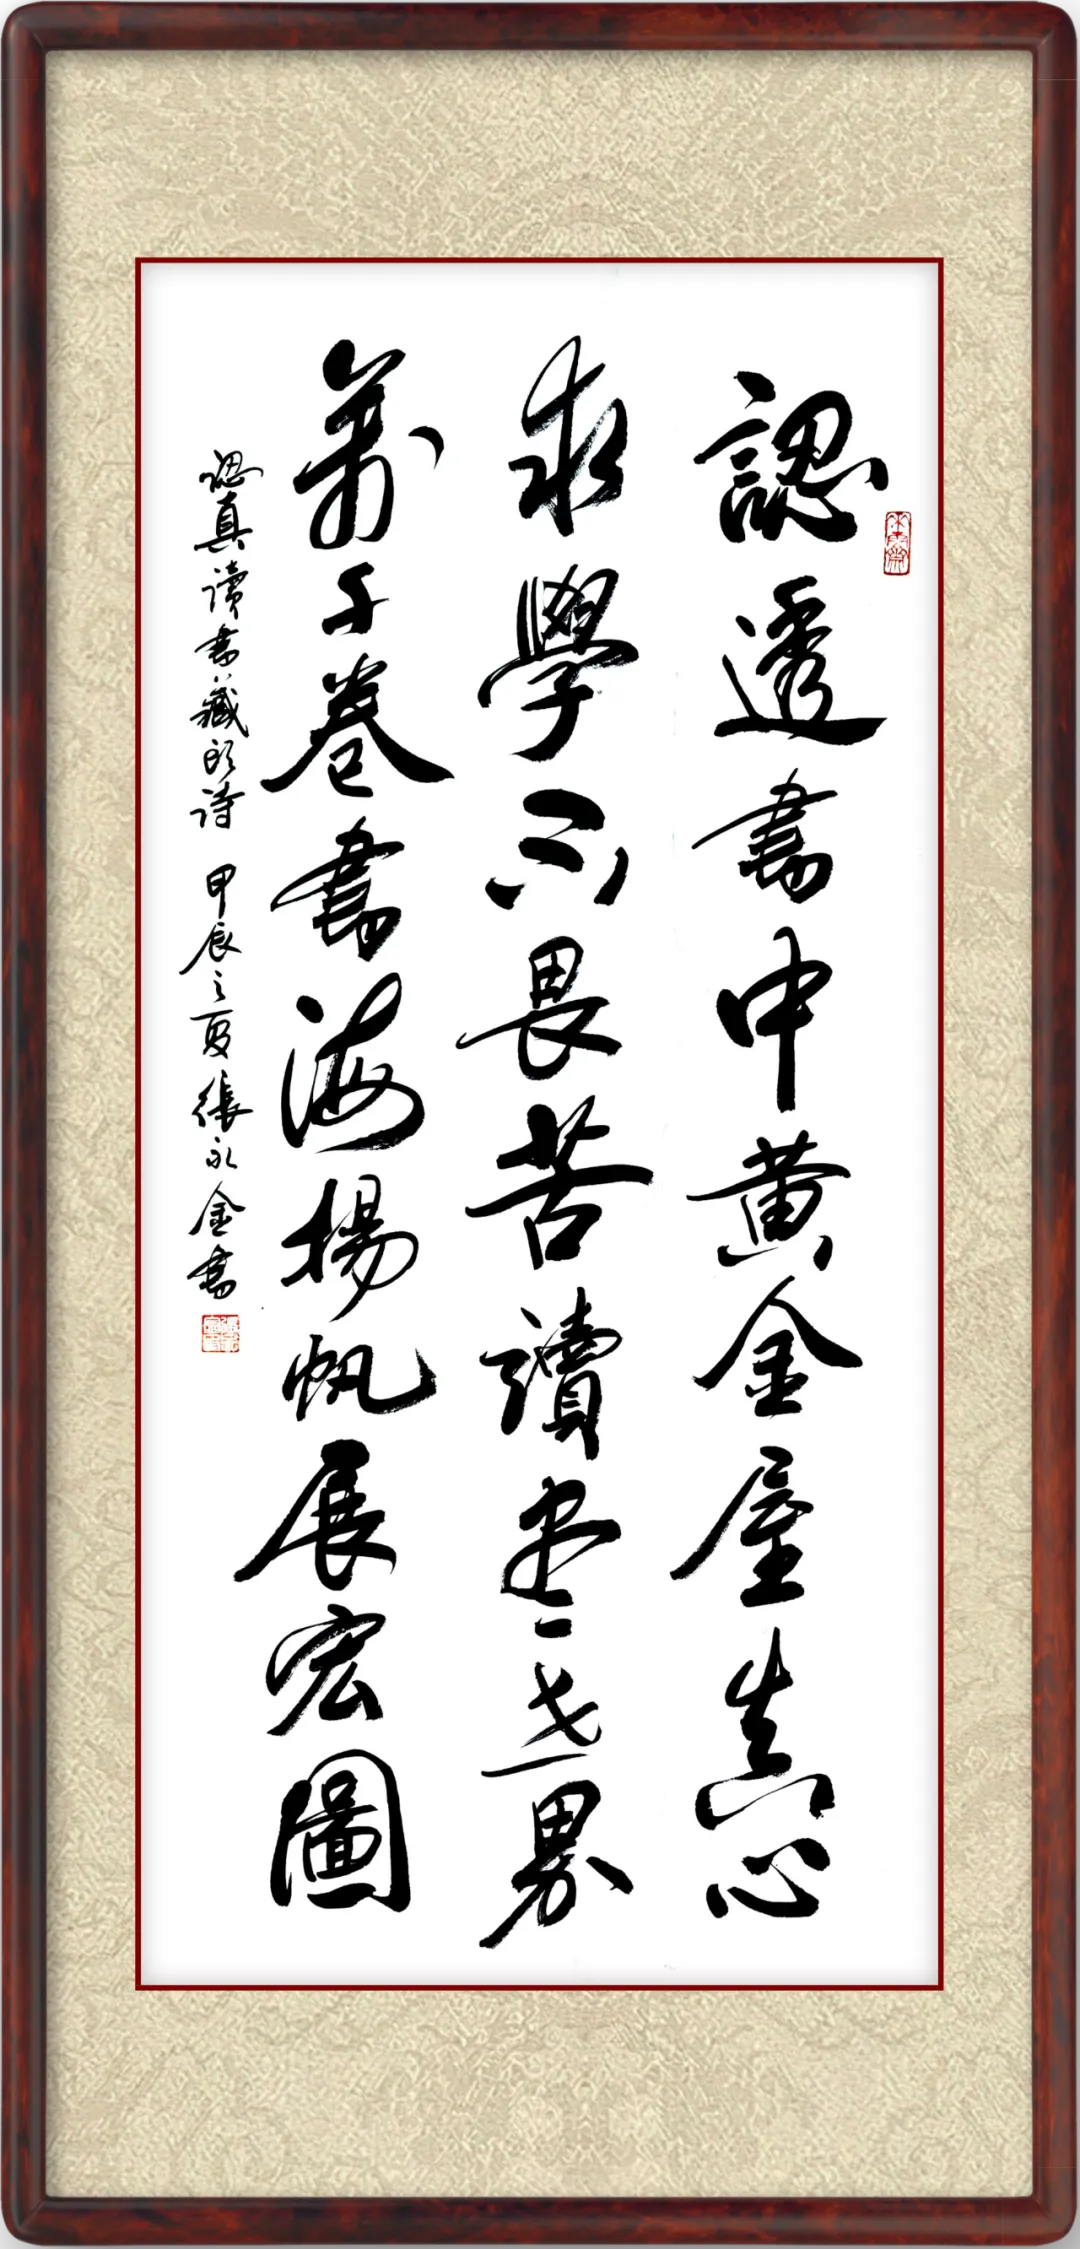 認透書中黄金屋真心
求學不畏苦讀盡世界
萬千卷書海揚帆展宏圖
認真讀書藏頭詩 甲辰之夏張永金書